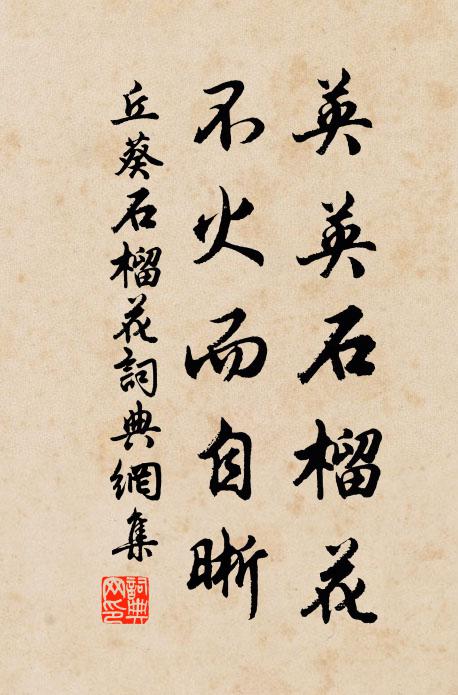 英英石榴花
不火而自晰
丘葵石榴花詞典網集
詞典網印